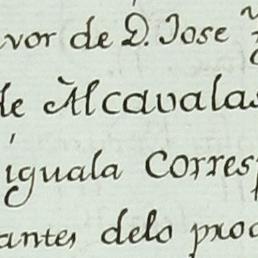 avor de D. Jose
de Alcavalas
iguala Corres
antes delo proc